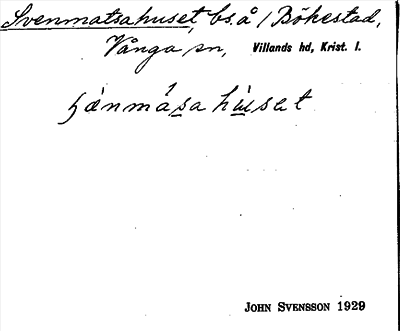 Svenmatsahuset, bs. å / Bökestad,
Vånga sn, Villands hd, Krist. l.
húset
JOHN SVENSSON 1929